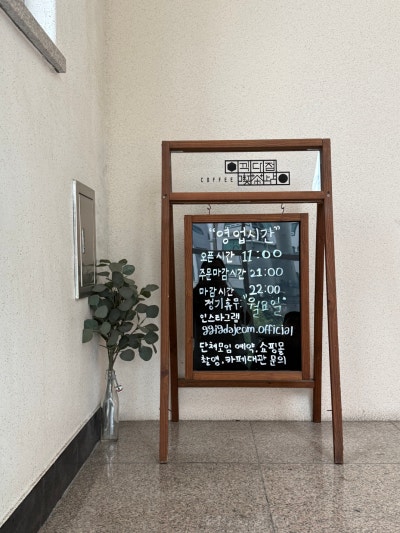 COFFEE
"영업시간"
오픈시간 11:00
주문마감시간 21:00
마감시간 22:00
정기휴무:"월요일"
인스타그램
단체모임 예약, 쇼핑몰
촬영, 카페대관 문의